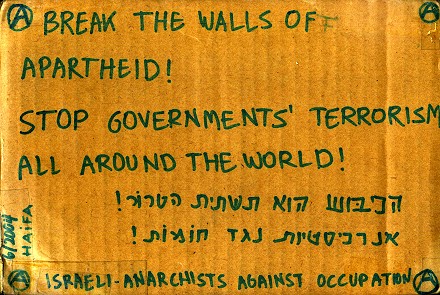 Ⓐ BREAK THE WALLS OF Ⓐ
APARTHEID!
STOP GOVERNMENTS' TERRORISM
ALL AROUND THE WORLD!
הכיבוש הוא תשתית הטרור!
אנרכיסטיות נגד חומות!
6/2004
HAIFA
Ⓐ ISRAELI-ANARCHISTS AGAINST OCCUPATION Ⓐ